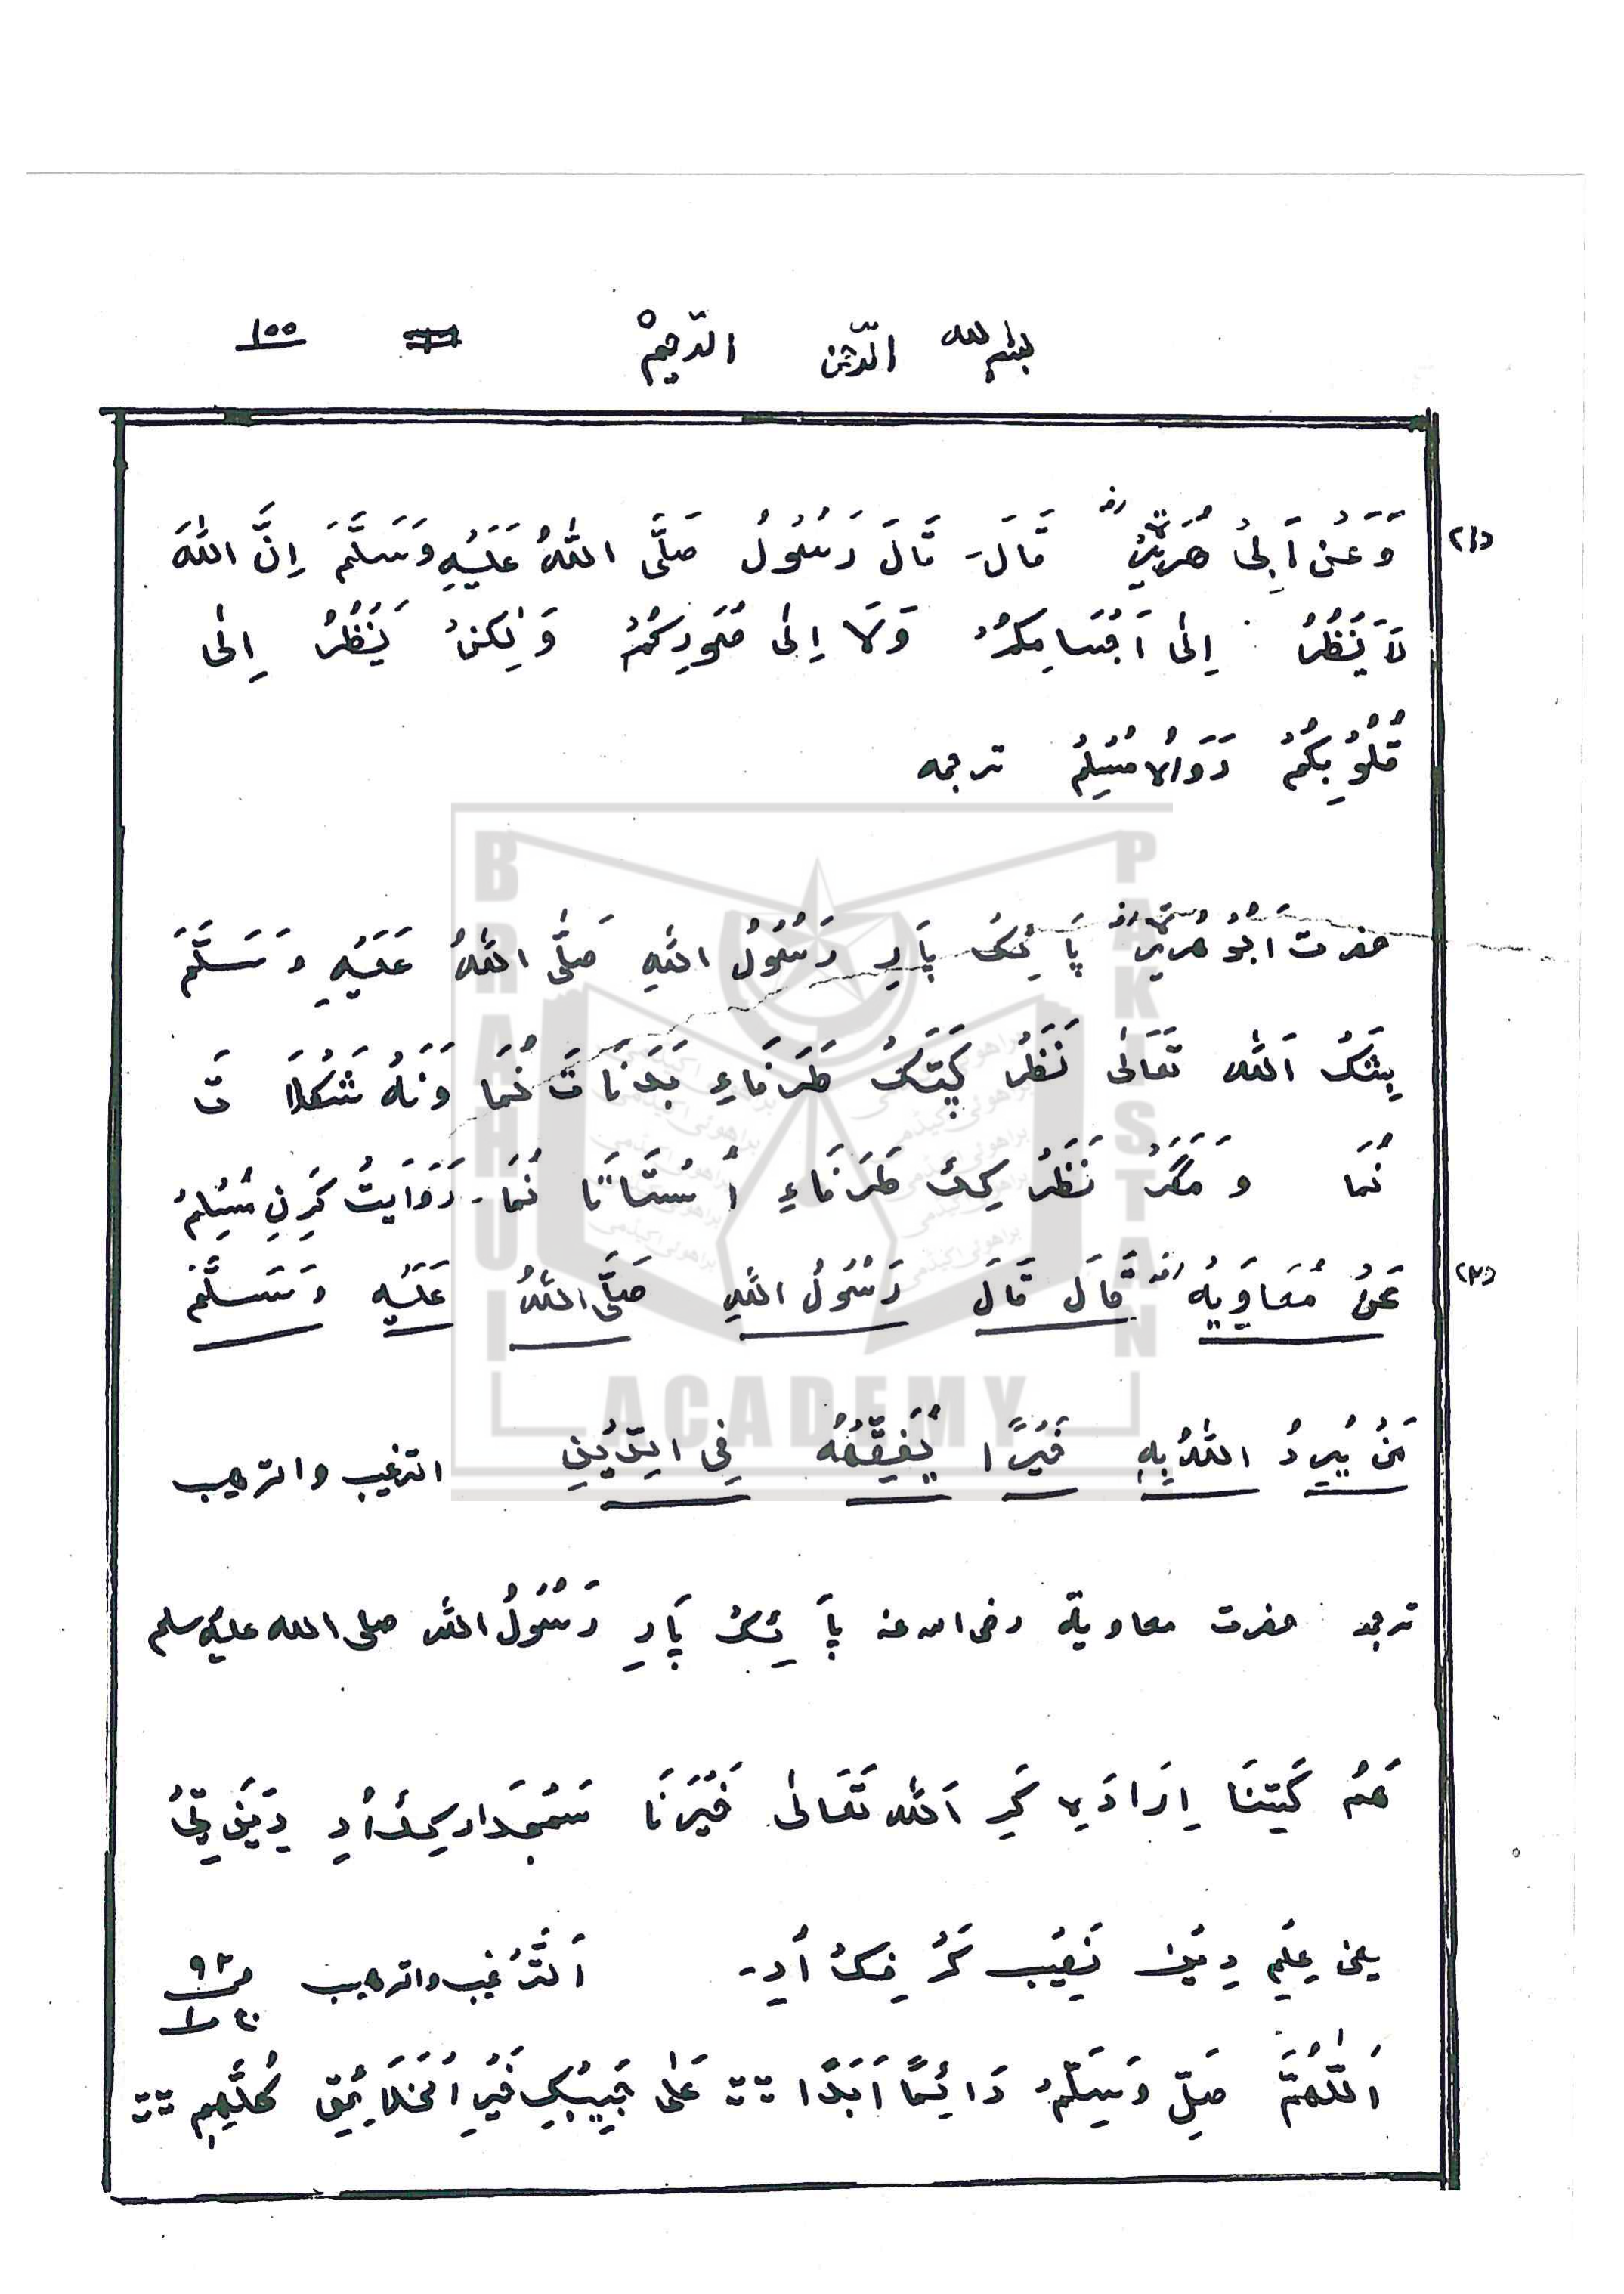 بسم الله الرّحمٰن الرّحیمْ ۱۰۰
(۲۱) وَعَنْ اَبِیْ هُرَیْرَةَؓ قَالَ۔ قَالَ رَسُوْلُ صَلَّی اللّٰهُ عَلَیْهِ وَسَلَّمَ اِنَّ اللّٰهَ
لَا یَنْظُرُ اِلٰی اَجْسَامِکُمْ وَلَا اِلٰی صُوَرِکُمْ وَلٰکِنْ یَنْظُرُ اِلٰی
قُلُوْبِکُمْ رَوَاهُ مُسْلِمُ ترجمه
حضرت اَبُوْ هُرَیْرَهؓ پَا ئِکْ پَارِ رَسُوْلُ اللّٰهِ صَلَّی اللّٰهُ عَلَیْهِ وَسَلَّمَ
بِشَکْ اَللّٰه تَعَالٰی نَظَرْ کَپَّکْ طَرَفَاءِ بَدَنَاتَ نُمَا وَنَهْ شَکْلَا تَ
نُمَا وَمَگَرْ نَظَرْ کِکْ طَرَفَاءِ اُسْتَاتَا نُمَا۔ رَوَایَتْ کَرِنِ مُسْلِمُ
(۳) عَنْ مُعَاوِیَهْؓ قَالَ قَالَ رَسُوْلُ اللّٰهِ صَلَّی اللّٰهُ عَلَیْهِ وَسَلَّمَ
مَنْ یُّرِدُ اللّٰهُ بِهٖ خَیْرًا یُّفَقِّهْهُ فِی الدِّیْنِ الترغیب والترهیب
ترجمه حضرت معاویة رضی الله عنه پَا ئِکْ پَارِ رَسُوْلُ اللّٰه صلی الله علیه وسلم
هَمْ کَسْنَا اِرَادَه کَرِ اَللّٰه تَعَالٰی خَیْرَنَا سَمْجَدار کِکْ اُدِ دِیْنَ ٹِیْ
یعنی عِلْمِ دِیْن نَصِیْب کَرْ فِکْ اُدِ۔ اَلتَّرْغِیب والترهیب ص۹۲ ج۱
اَللّٰهُمَّ صَلِّ وَسَلِّمْ دَائِمًا اَبَدًا ؞؞ عَلٰی حَبِیْبِکَ خَیْرِ الْخَلَائِقِ کُلِّهِمْ ؞؞
BRAHUI
ACADEMY
PAKISTAN
براهوئی اکیڈمی